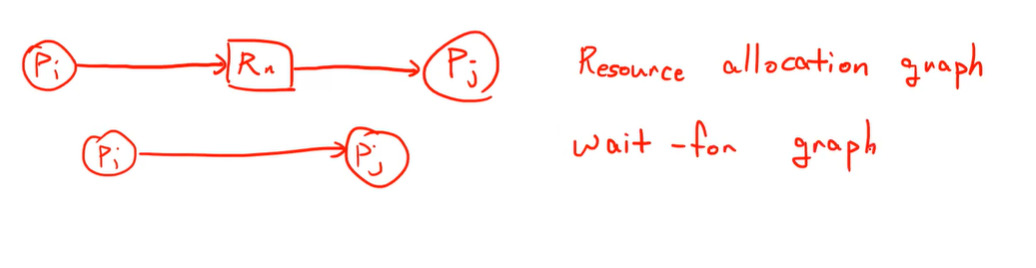 Pi Rn Pj Resource allocation graph
Pi Pj wait-for graph